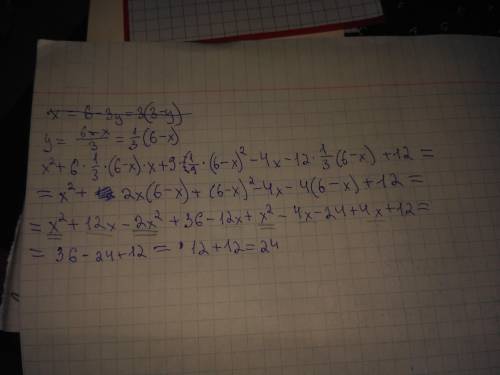 x = 6 - 3y = 3(3-y)
y = \frac{6-x}{3} = \frac{1}{3}(6-x)
x² + 6 · \frac{1}{3} · (6-x) · x + 9 · \frac{1}{9} · (6-x)² - 4x - 12 · \frac{1}{3}(6-x) + 12 =
= x² + 2x(6-x) + (6-x)² - 4x - 4(6-x) + 12 =
= x² + 12x - 2x² + 36 - 12x + x² - 4x - 24 + 4x + 12 =
= 36 - 24 + 12 = 12 + 12 = 24